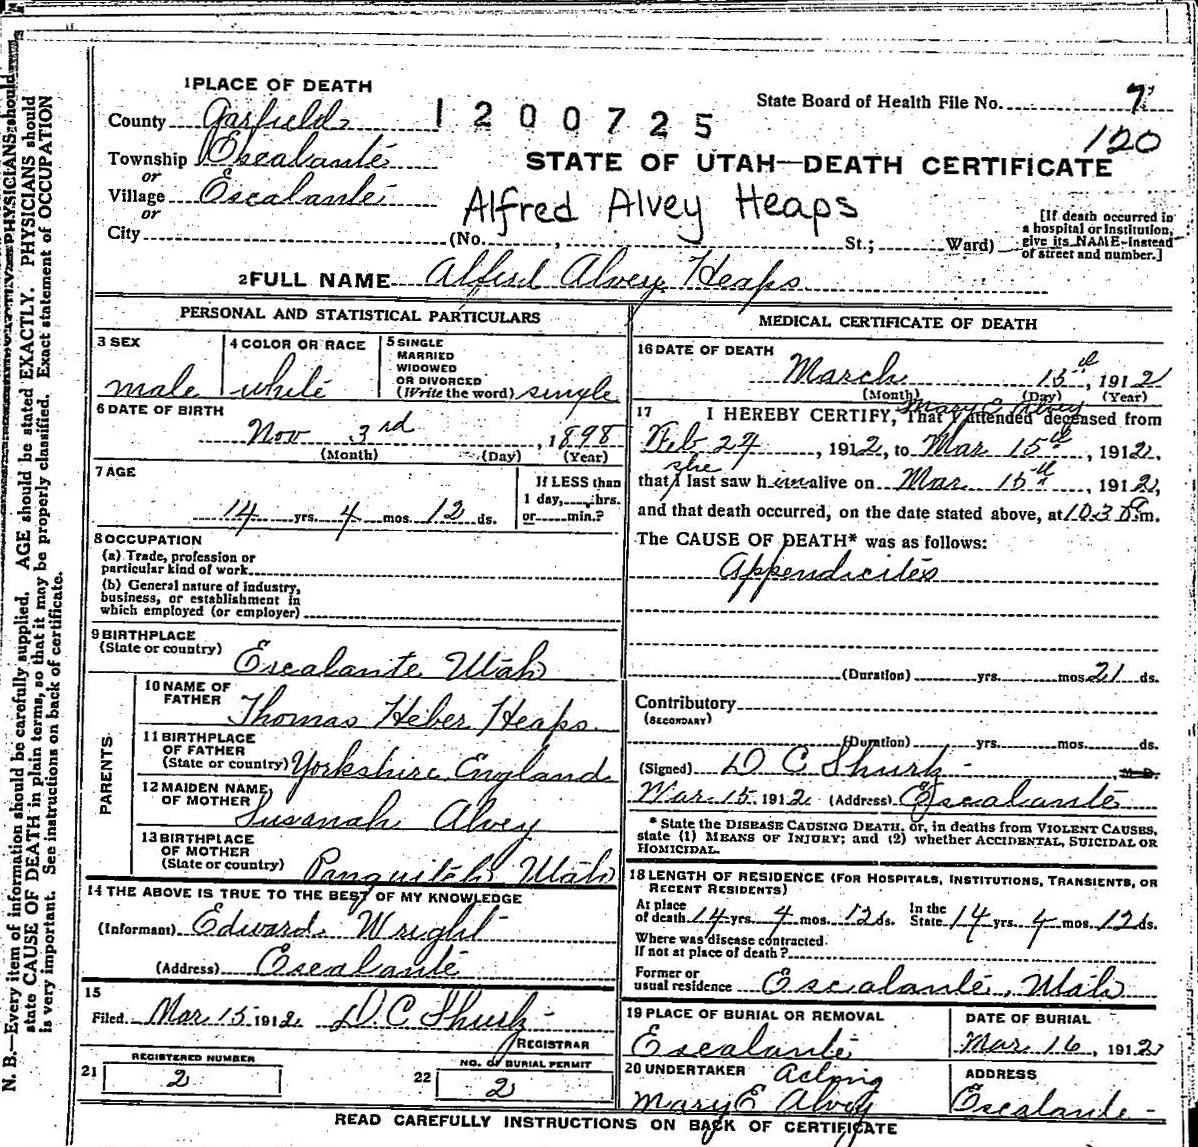 1 PLACE OF DEATH
County Garfield
1200725
State Board of Health File No. 7
120
Township Escalante
or
Village Escalante
or
City
STATE OF UTAH—DEATH CERTIFICATE
Alfred Alvey Heaps
(No. , St.; Ward)
[If death occurred in
a hospital or institution,
give its NAME instead
of street and number.]
2 FULL NAME Alfred Alvey Heaps
PERSONAL AND STATISTICAL PARTICULARS
3 SEX
male
4 COLOR OR RACE
white
5 SINGLE
MARRIED
WIDOWED
OR DIVORCED
(Write the word) single
6 DATE OF BIRTH
Nov 3rd, 1898
(Month) (Day) (Year)
7 AGE
14 yrs. 4 mos. 12 ds.
If LESS than
1 day, hrs.
or min.?
8 OCCUPATION
(a) Trade, profession or
particular kind of work
(b) General nature of industry,
business, or establishment in
which employed (or employer)
9 BIRTHPLACE
(State or country) Escalante Utah
PARENTS
10 NAME OF
FATHER Thomas Heber Heaps
11 BIRTHPLACE
OF FATHER
(State or country) Yorkshire England
12 MAIDEN NAME
OF MOTHER Susanah Alvey
13 BIRTHPLACE
OF MOTHER
(State or country) Panguitch Utah
14 THE ABOVE IS TRUE TO THE BEST OF MY KNOWLEDGE
(Informant) Edward Wright
(Address) Escalante
15
Filed Mar 15 1912 D. C. Shurtz
REGISTRAR
21 REGISTERED NUMBER
2
22 NO. OF BURIAL PERMIT
2
MEDICAL CERTIFICATE OF DEATH
16 DATE OF DEATH
March 15th, 1912
(Month) (Day) (Year)
Mary E Alvey
17 I HEREBY CERTIFY, That I attended deceased from
Feb 24, 1912, to Mar 15th, 1912,
she
that I last saw him alive on Mar 15th, 1912,
and that death occurred, on the date stated above, at 1030 a m.
The CAUSE OF DEATH* was as follows:
Appendicites
(Duration) yrs. mos. 21 ds.
Contributory
(SECONDARY)
(Duration) yrs. mos. ds.
(Signed) D C Shurtz, M.D.
Mar. 15 1912 (Address) Escalante
* State the DISEASE CAUSING DEATH, or, in deaths from VIOLENT CAUSES,
state (1) MEANS OF INJURY; and (2) whether ACCIDENTAL, SUICIDAL OR
HOMICIDAL.
18 LENGTH OF RESIDENCE (FOR HOSPITALS, INSTITUTIONS, TRANSIENTS, OR
RECENT RESIDENTS)
At place
of death 14 yrs. 4 mos. 12 ds. In the
State 14 yrs. 4 mos. 12 ds.
Where was disease contracted
if not at place of death?
Former or
usual residence Escalante, Utah
19 PLACE OF BURIAL OR REMOVAL
Escalante
DATE OF BURIAL
Mar 16, 1912
20 UNDERTAKER Acting
Mary E Alvey
ADDRESS
Escalante
READ CAREFULLY INSTRUCTIONS ON BACK OF CERTIFICATE
N. B.—Every item of information should be carefully supplied. AGE should be stated EXACTLY. PHYSICIANS should
state CAUSE OF DEATH in plain terms, so that it may be properly classified. Exact statement of OCCUPATION
is very important. See instructions on back of certificate.